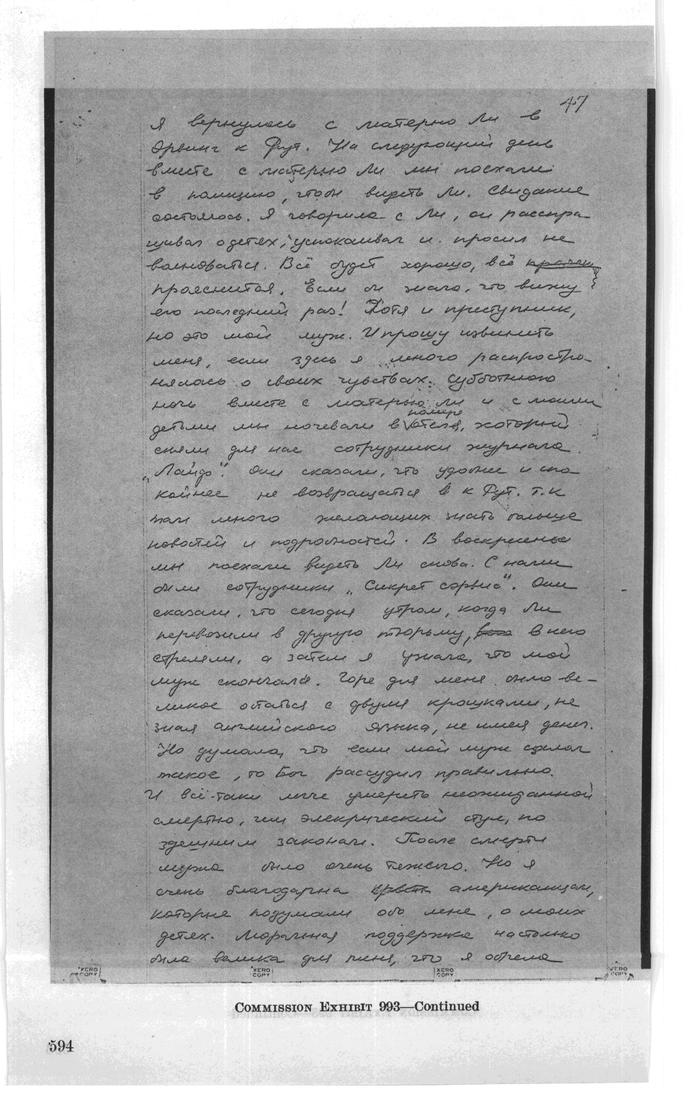 47
Я вернулась с матерью Ли в
Ирвинг к Рут. На следующий день
вместе с матерью Ли мы поехали
в полицию, чтобы видеть Ли. Свидание
состоялось. Я говорила с Ли, он расспра-
шивал о детях, успокаивал и просил не
волноваться. Всё будет хорошо, всё
прояснится. Если бы знала, что вижу
его последний раз! Хотя и преступник,
но это мой муж. И прошу извинить
меня, если здесь я много распростра-
нялась о своих чувствах. Субботнюю
ночь вместе с матерью Ли и с моими
детьми мы ночевали в номере отеля, который
сняли для нас сотрудники журнала
„Лайф". Они сказали, что удобнее и спо
койнее не возвращаться в к Рут. т.к
там много желающих знать больше
новостей и подробностей. В воскресенье
мы поехали видеть Ли снова. С нами
были сотрудники „Сикрет сервис". Они
сказали, что сегодня утром, когда Ли
перевозили в другую тюрьму, в него
стреляли, а затем я узнала, что мой
муж скончался. Горе для меня было ве-
ликое остаться с двумя крошками, не
зная английского языка, не имея денег.
Но думала, что если мой муж сделал
такое, то Бог рассудил правильно.
И всё-таки легче умереть неожиданной
смертью, чем электрический стул, по
здешним законам. После смерти
мужа было очень тяжело. Но я
очень благодарна американцам,
которые подумали обо мне, о моих
детях. Моральная поддержка настолько
была велика для меня, что я обрела
XERO COPY
XERO COPY
XERO COPY
XERO COPY
COMMISSION EXHIBIT 993—Continued
594